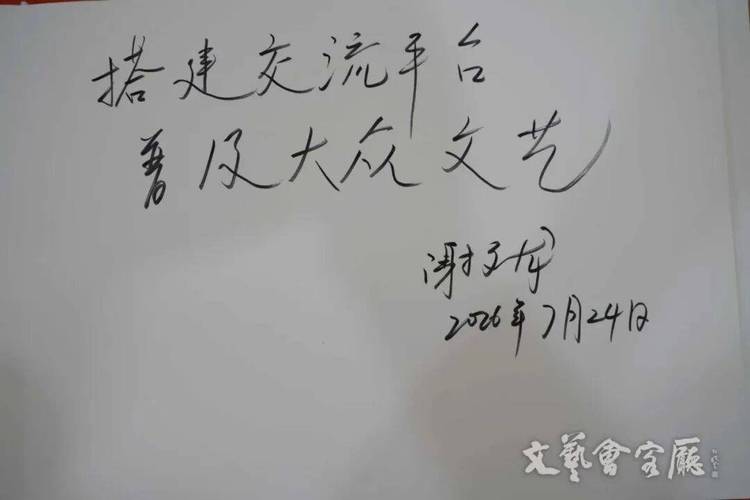 搭建交流平台
普及大众文艺
谢文
2026年7月24日
文藝會客廳